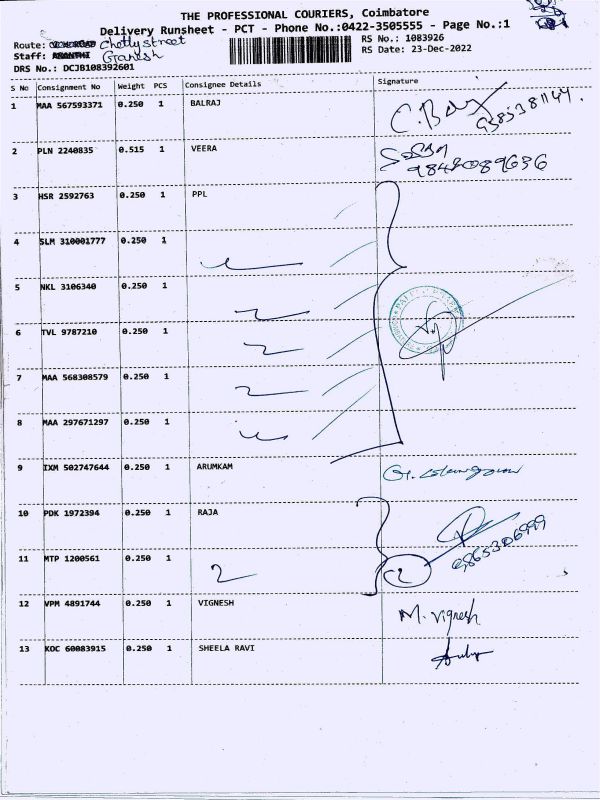 THE PROFESSIONAL COURIERS, Coimbatore
Delivery Runsheet - PCT - Phone No.:0422-3505555 - Page No.:1
Route: Chettystreet
RS No.: 1083926
Staff: Ganesh
RS Date: 23-Dec-2022
DRS No.: DCJB108392601
S No Consignment No Weight PCS Consignee Details Signature
1 MAA 567593371 0.250 1 BALRAJ
2 PLN 2240835 0.515 1 VEERA
3 HSR 2592763 0.250 1 PPL
4 SLM 310001777 0.250 1
5 NKL 3106340 0.250 1
6 TVL 9787210 0.250 1
7 MAA 568308579 0.250 1
8 MAA 297671297 0.250 1
9 IXM 502747644 0.250 1 ARUMKAM
10 PDK 1972394 0.250 1 RAJA
11 MTP 1200561 0.250 1
12 VPM 4891744 0.250 1 VIGNESH M. Vignesh
13 KOC 60083915 0.250 1 SHEELA RAVI